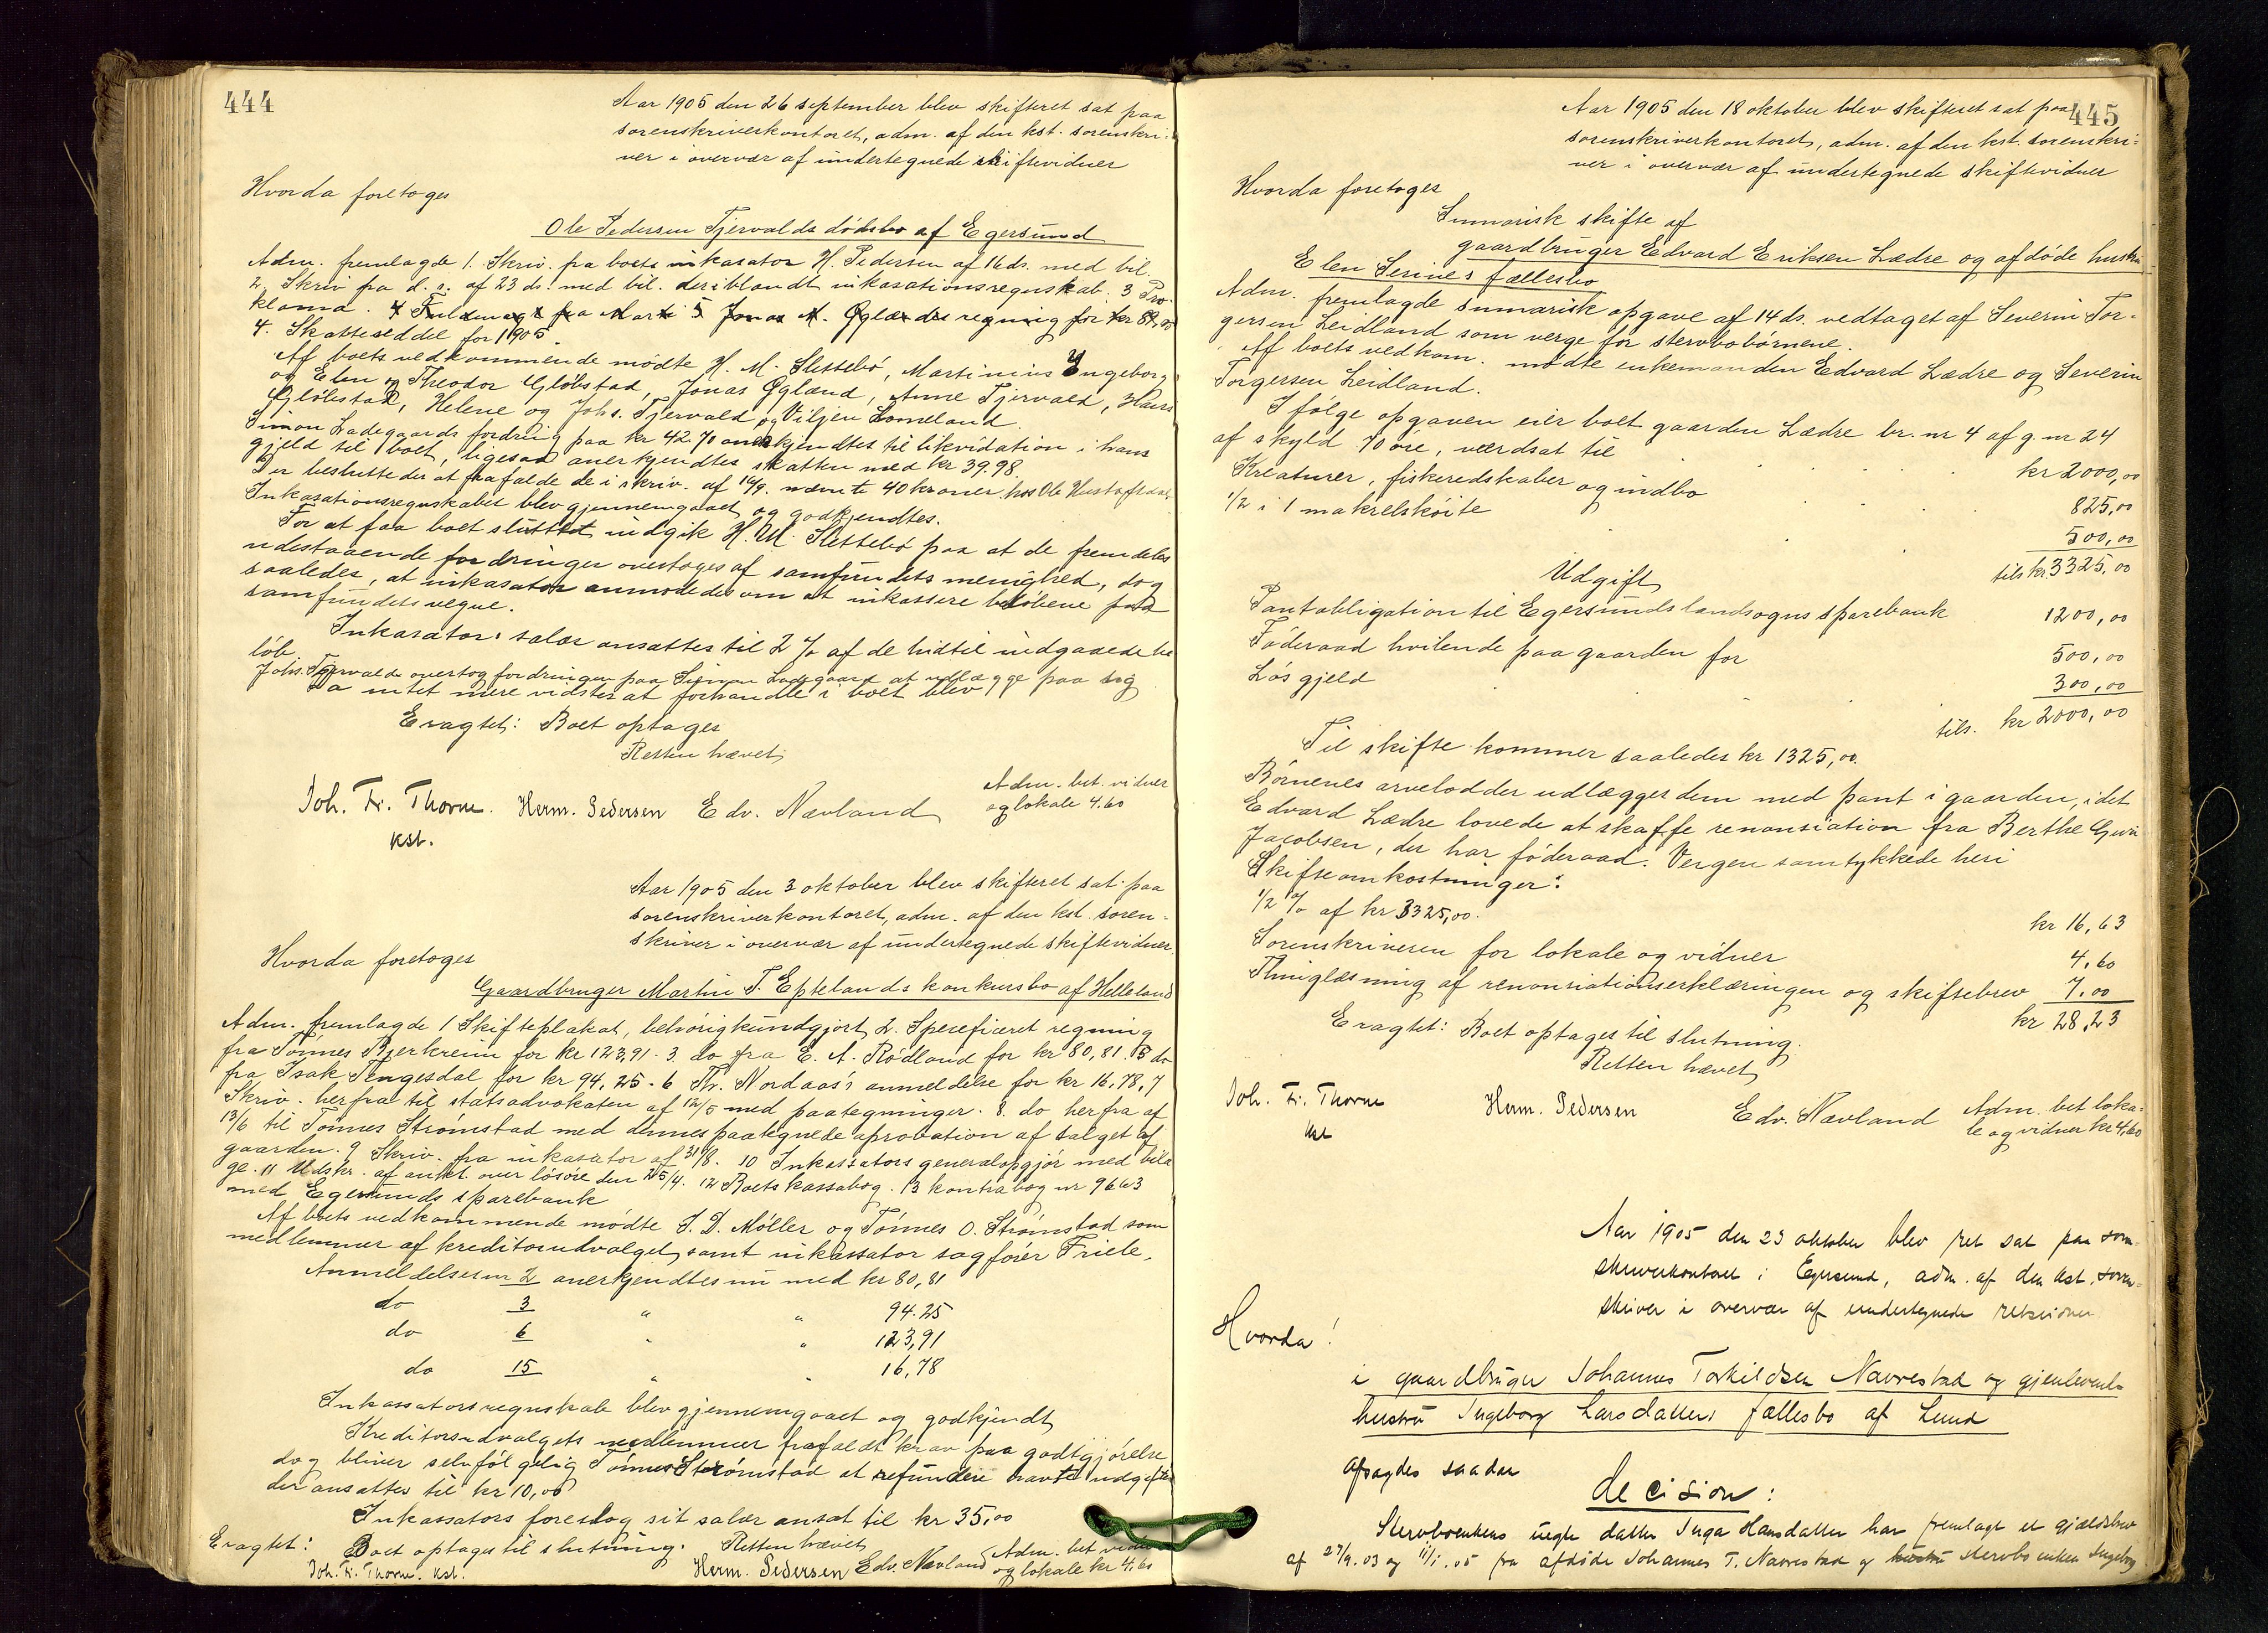 444
Aar 1905 den 26 september blev skifteret sat paa
sorenskriverkontoret, adm. af den kst. sorenskri-
ver i overvær af undertegnede skiftevidner
Hvorda foretoges
Ole Pedersen Tjervalds dødsbo af Egersund
Adm. fremlagde 1. Skriv. fra boets inkasator H. Pedersen af 16 ds. med bil.
2. Skriv fra d. s. af 23 ds. med bil. deriblandt inkasationsregnskab. 3 Pro-
klama. 4 Fuldmagt fra Marti 5 Jonas M. Ogland's regning for kr
4. Skatteseddel for 1905.
Af boets vedkommende mødte H. M. Slettebø, Martinius Ingeborg
og Elen Theodor Gløbstad, Jonas Øgland, Anne Tjervald, Hans
Gløbstad, Helene og Johs. Tjervald og Viljen Lomeland.
Simon Ladegaards fordring paa kr 42.70 anerkjendtes til likvidation i hans
gjeld til boet, ligesaa anerkjendtes skatten med kr 39.98.
Der besluttedes at frafalde de i skriv. af 16/9. nævnte 40 kroner hos Ole
Inkasationsregnskabet blev gjennemgaaet og godkjendtes.
For at faa boet sluttet indgik H. M. Slettebø paa at de fremdeles
udestaaende fordringer overtoges af samfundets menighed, dog
saaledes, at inkasator anmodedes om at inkassere beløbene paa
samfundets vegne.
Inkasators salær ansattes til 2 % af de hidtil indgaaede be
løb.
Johs. Tjervald overtog fordringen paa Simon Ladegaard at udlægge paa sig
Da intet mere vidstes at forhandle i boet blev
Eragtet: Boet optages
Retten hævet
Joh. Fr. Thorne. Herm. Pedersen Edv. Nævland
kst.
Adm. bet. vidner
og lokale 4.60
Aar 1905 den 3 oktober blev skifteret sat paa
sorenskriverkontoret, adm. af den kst. soren-
skriver i overvær af undertegnede skiftevidner
Hvorda foretoges
Gaardbruger Martin T. Eptelands konkursbo af Helleland
Adm. fremlagde 1 Skifteplakat, behørig kundgjort, 2. Speceficeret regning
fra Tønnes Bjerkreim for kr 123,91. 3. do fra E. A. Rødland for kr 80,81. 5 do
fra Isak Tengesdal for kr 94,25. 6 Th. Nordaas's anmeldelse for kr 16,78, 7
Skriv. herfra til statsadvokaten af 12/5 med paategninger. 8. do herfra af
13/6 til Tønnes Strømstad med dennes paategnede aprobation af salget af
gaarden. 9 Skriv. fra inkasator af 31/8. 10 Inkassators generalopgjør med bila
ge. 11 Udskr. af aukt. over løsøre den 25/4. 12 Boets kassabog. 13 kontrabog nr 9663
med Egersunds sparebank
Af boets vedkommende mødte J. D. Møller og Tønnes O. Strømstad som
medlemmer af kreditorudvalget, samt inkassator sagfører Friele.
Anmeldelses nr 2 anerkjendtes nu med kr 80,81
do 3 " " 94.25
do 6 " " 123,91
do 15 " " 16,78
Inkassatorsregnskab blev gjennemgaaet og godkjendt
Kreditorudvalgets medlemmer frafaldt krav paa godtgjørelse
dog bliver selvfølgelig Tønnes Strømstad at refundere havte udgifter
der ansattes til kr 10,00
Inkassators foreslog sit salær ansat til kr 35,00
Eragtet: Boet optages til slutning. Retten hævet
Joh. Fr. Thorne. kst. Herm. Pedersen Edv. Nævland
Adm. bet vidner
og lokale kr 4,60
445
Aar 1905 den 18 oktober blev skifteret sat paa
sorenskriverkontoret, adm. af den kst. sorenskri-
ver i overvær af undertegnede skiftevidner
Hvorda foretoges
Summarisk skifte af
gaardbruger Edvard Eriksen Lædre og afdøde hustru
Elen Serines fællesbo
Adm. fremlagde summarisk opgave af 14 ds. vedtaget af Severin Tor-
gersen Leidland som verge for stervbobørnene.
Af boets vedkom. mødte enkemanden Edvard Lædre og Severin
Torgersen Leidland.
Ifølge opgaven eier boet gaarden Lædre br. nr 4 af g. nr 24
af skyld 70 øre, værdsat til kr 2000,00
Kreaturer, fiskeredskaber og indbo 825,00
1/2 i 1 makrelskøite 500,00
tils kr. 3325,00
Udgift
Pantobligation til Egersunds landsogns sparebank 1200,00
Føderaad hvilende paa gaarden for 500,00
Løs gjeld 300,00
tils. kr 2000,00
Til skifte kommer saaledes kr 1325,00.
Børnenes arvelodder udlægges dem med pant i gaarden, idet
Edvard Lædre lovede at skaffe renonsiation fra Berthe
Jacobsen, der har føderaad. Vergen samtykkede heri
Skifteomkostninger:
1/2 % af kr 3325,00. kr 16,63
Sorenskriveren for lokale og vidner 4.60
Thinglæsning af renonsiationserklæringen og skiftebrev 7.00
kr 28,23
Eragtet: Boet optages til slutning.
Retten hævet
Joh. Fr. Thorne Herm. Pedersen Edv. Nævland
kst
Adm. bet loka-
le og vidner kr 4,60
Aar 1905 den 23 oktober blev ret sat paa soren-
skriverkontoret i Egersund, adm. af den kst. soren-
skriver i overvær af undertegnede retsvidner
Hvorda!
i gaardbruger Johannes Torkildsen Navrestad og gjenlevende
hustru Ingeborg Larsdatters fællesbo af Lund
afsagdes saadan
decision:
Stervboenkens uegte datter Inga Hansdatter har fremlagt et gjældsbrev
af 27/9.03 og 11/1.05 fra afdøde Johannes T. Navrestad og hustru stervboenken Ingeborg